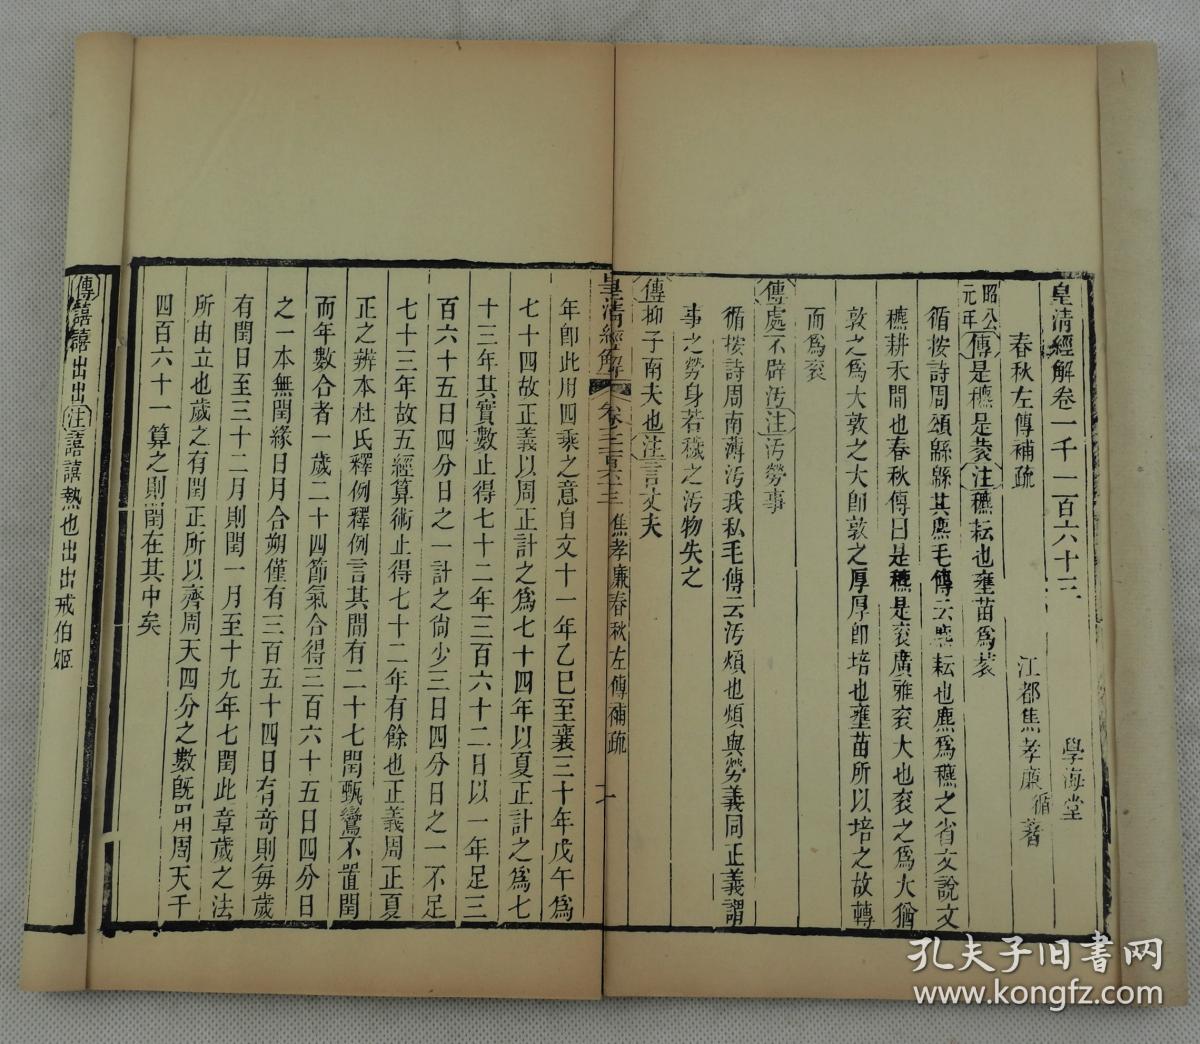 皇清經解卷一千一百六十三
學海堂
春秋左傳補疏
江都焦孝廉循著
昭公元年傳是穮是蓘注穮耘也壅苗爲蓘
循按詩周頌緜緜其麃毛傳云麃耘也麃爲穮之省文說文
穮耕禾間也春秋傳曰是穮是袞廣雅袞大也袞之爲大猶
敦之爲大敦之大卽敦之厚厚卽培也壅苗所以培之故轉
而爲袞
傳處不辟汚注汚勞事
循按詩周南薄汚我私毛傳云汚煩也煩與勞義同正義謂
事之勞身若穢之汚物失之
傳抑子南夫也注言丈夫
皇清經解
焦孝廉春秋左傳補疏
年卽此用四乘之意自文十一年乙巳至襄三十年戊午爲
七十四故正義以周正計之爲七十四年以夏正計之爲七
十三年其實數止得七十二年三百六十二日以一年足三
百六十五日四分日之一計之尙少三日四分日之一不足
七十三年故五經算術止得七十二年有餘也正義周正夏
正之辨本杜氏釋例釋例言其間有二十七閏甄鸞不置閏
而年數合者一歲二十四節氣合得三百六十五日四分日
之一本無閏緣日月合朔僅有三百五十四日有奇則每歲
有閏日至三十二月則閏一月至十九年七閏此章歲之法
所由立也歲之有閏正所以齊周天四分之數旣用周天千
四百六十一算之則閏在其中矣
傳譆譆出出注譆譆熱也出出戒伯姬
孔夫子旧书网
www.kongfz.com